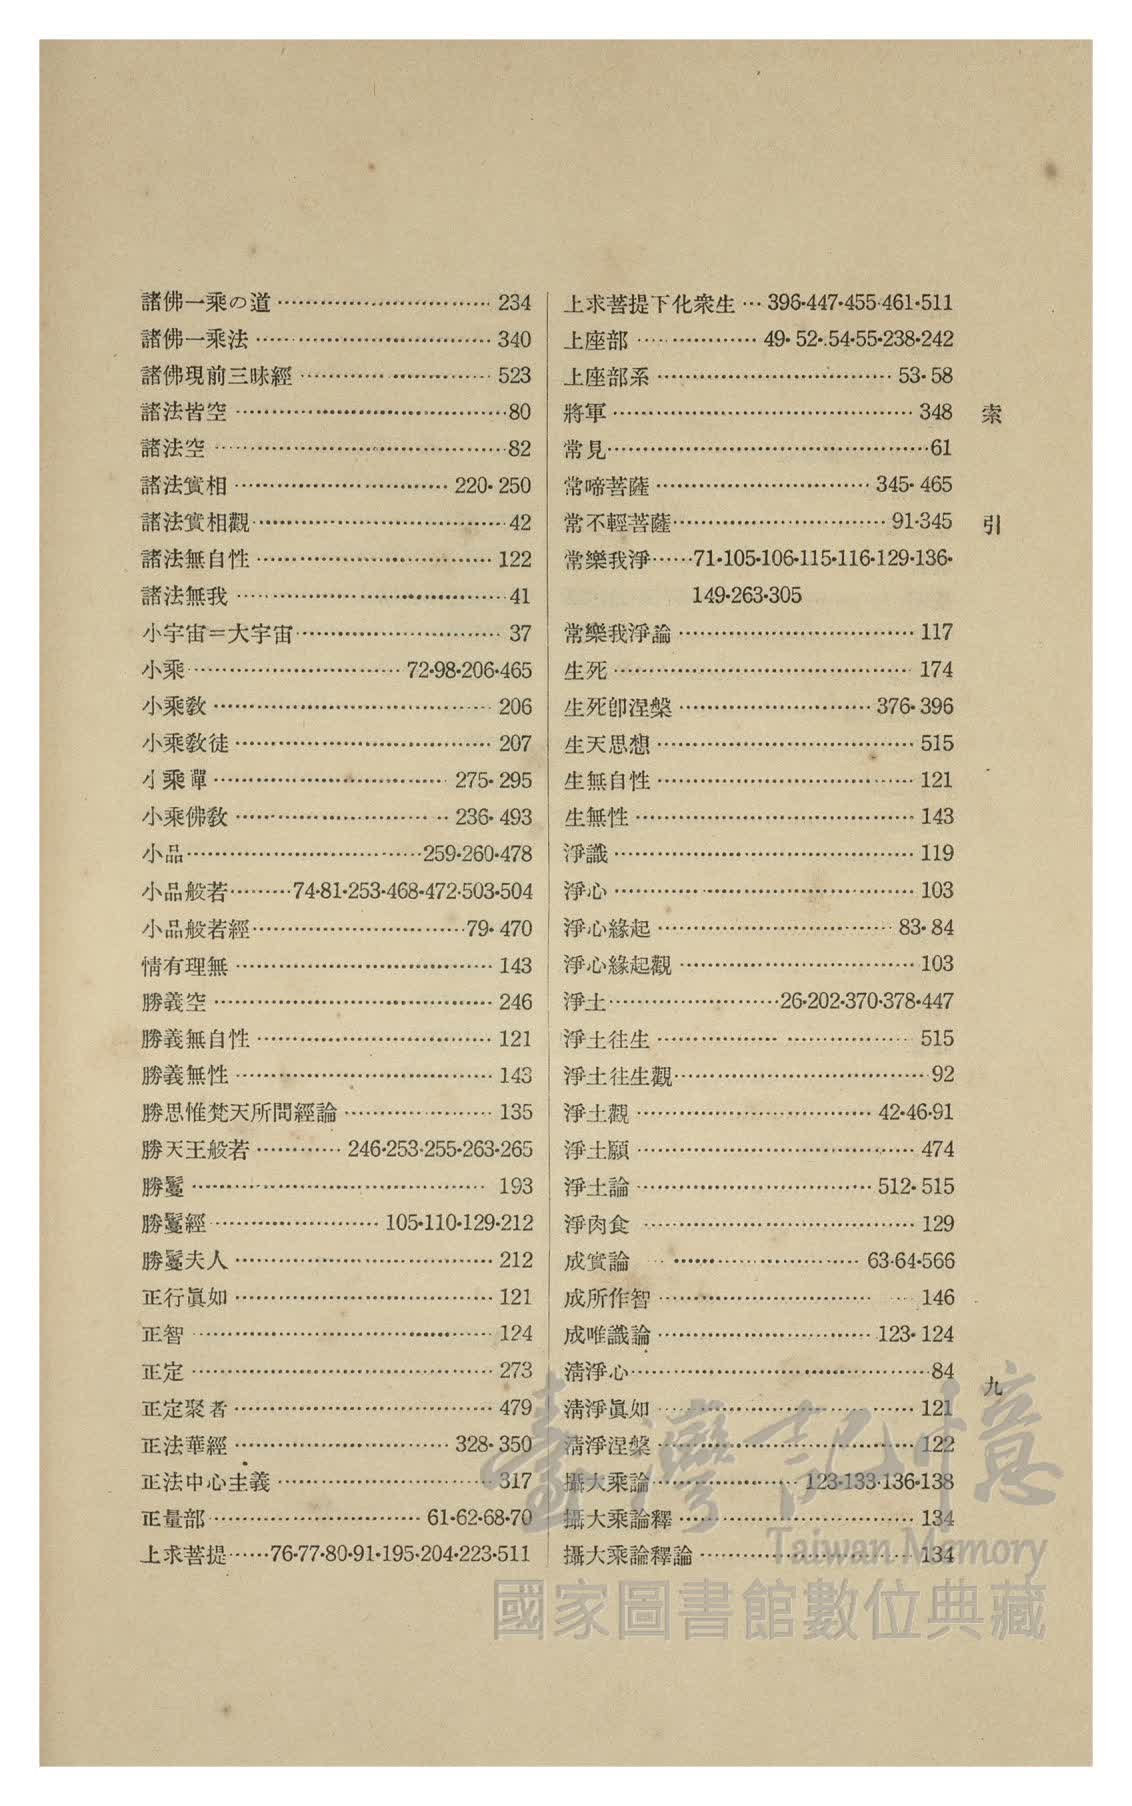 諸佛一乘の道 …………………… 234
諸佛一乘法 …………………… 340
諸佛現前三昧經 …………………… 523
諸法皆空 …………………… 80
諸法空 …………………… 82
諸法實相 …………………… 220·250
諸法實相觀 …………………… 42
諸法無自性 …………………… 122
諸法無我 …………………… 41
小宇宙=大宇宙 …………………… 37
小乘 …………………… 72·98·206·465
小乘敎 …………………… 206
小乘敎徒 …………………… 207
小乘禪 …………………… 275·295
小乘佛敎 …………………… 236·493
小品 …………………… 259·260·478
小品般若 ……… 74·81·253·468·472·503·504
小品般若經 …………………… 79·470
情有理無 …………………… 143
勝義空 …………………… 246
勝義無自性 …………………… 121
勝義無性 …………………… 143
勝思惟梵天所問經論 ……………… 135
勝天王般若 ………… 246·253·255·263·265
勝鬘 …………………… 193
勝鬘經 …………………… 105·110·129·212
勝鬘夫人 …………………… 212
正行眞如 …………………… 121
正智 …………………… 124
正定 …………………… 273
正定聚者 …………………… 479
正法華經 …………………… 328·350
正法中心主義 …………………… 317
正量部 …………………… 61·62·68·70
上求菩提 …… 76·77·80·91·195·204·223·511
上求菩提下化衆生 … 396·447·455·461·511
上座部 ……………… 49·52·54·55·238·242
上座部系 …………………… 53·58
將軍 …………………… 348
常見 …………………… 61
常啼菩薩 …………………… 345·465
常不輕菩薩 …………………… 91·345
常樂我淨 …… 71·105·106·115·116·129·136·
149·263·305
常樂我淨論 …………………… 117
生死 …………………… 174
生死卽涅槃 …………………… 376·396
生天思想 …………………… 515
生無自性 …………………… 121
生無性 …………………… 143
淨識 …………………… 119
淨心 …………………… 103
淨心緣起 …………………… 83·84
淨心緣起觀 …………………… 103
淨土 …………………… 26·202·370·378·447
淨土往生 …………………… 515
淨土往生觀 …………………… 92
淨土觀 …………………… 42·46·91
淨土願 …………………… 474
淨土論 …………………… 512·515
淨肉食 …………………… 129
成實論 …………………… 63·64·566
成所作智 …………………… 146
成唯識論 …………………… 123·124
淸淨心 …………………… 84
淸淨眞如 …………………… 121
淸淨涅槃 …………………… 122
攝大乘論 ……………… 123·133·136·138
攝大乘論釋 …………………… 134
攝大乘論釋論 …………………… 134
索引
九
臺灣記憶
Taiwan Memory
國家圖書館數位典藏